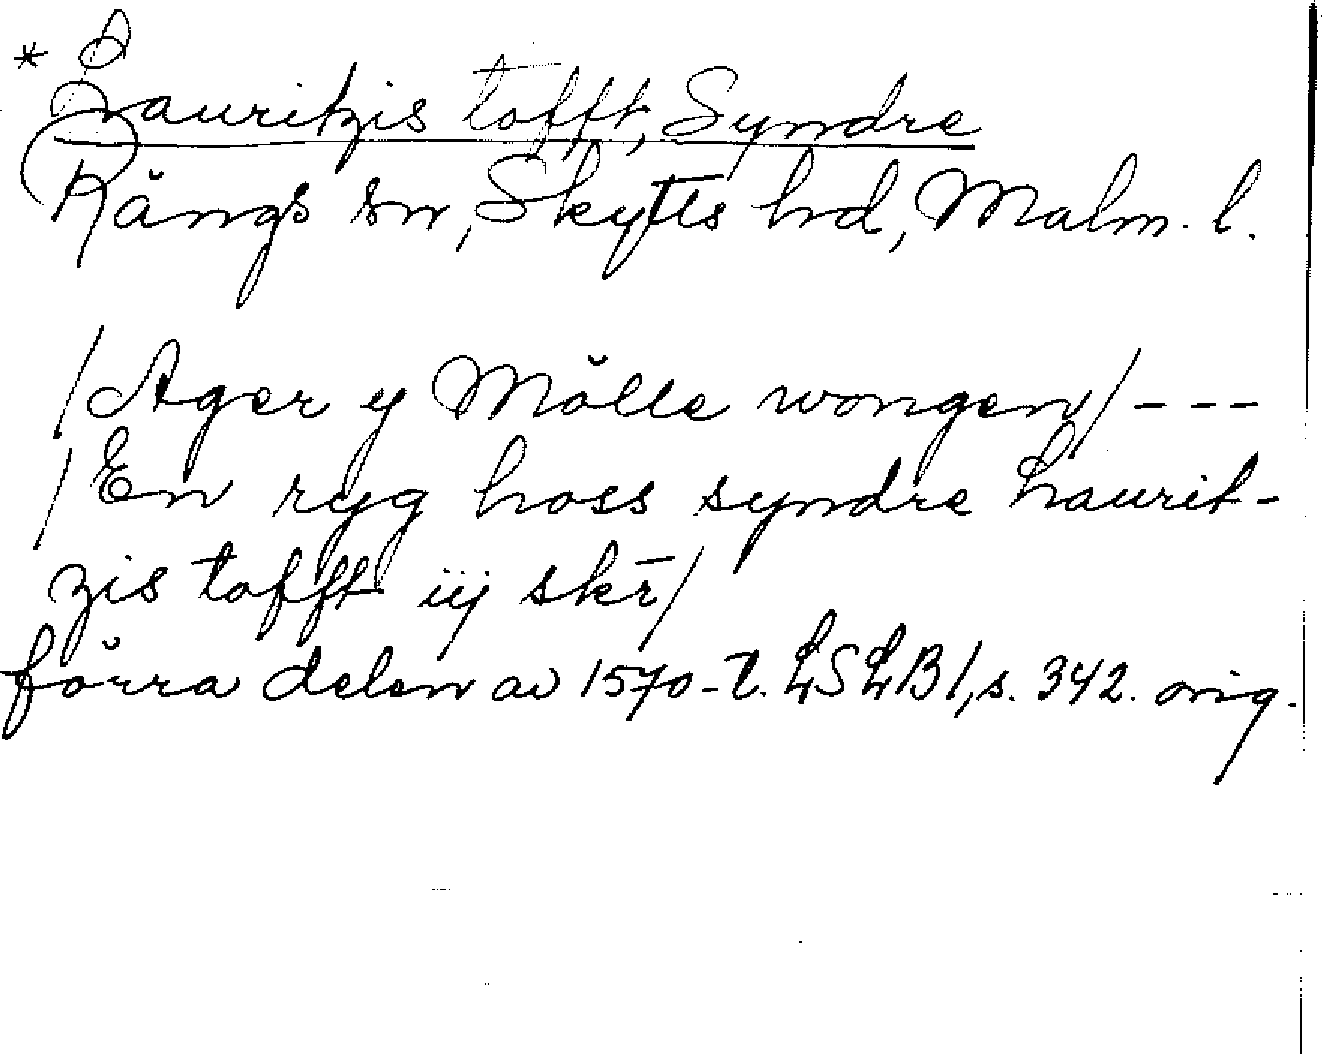 * Lauritzis tofft, Syndre
Rångs sn, Skytts hd, Malm. l.
/Ager y Mölle wongen/ - - -
/En ryg hoss syndre Laurit-
zis tofft iij skr̄/
förra delen av 1570-t. LSLB I, s. 342. orig.